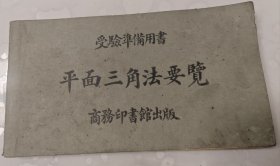 受驗準備用書
平面三角法要覽
商務印書館出版